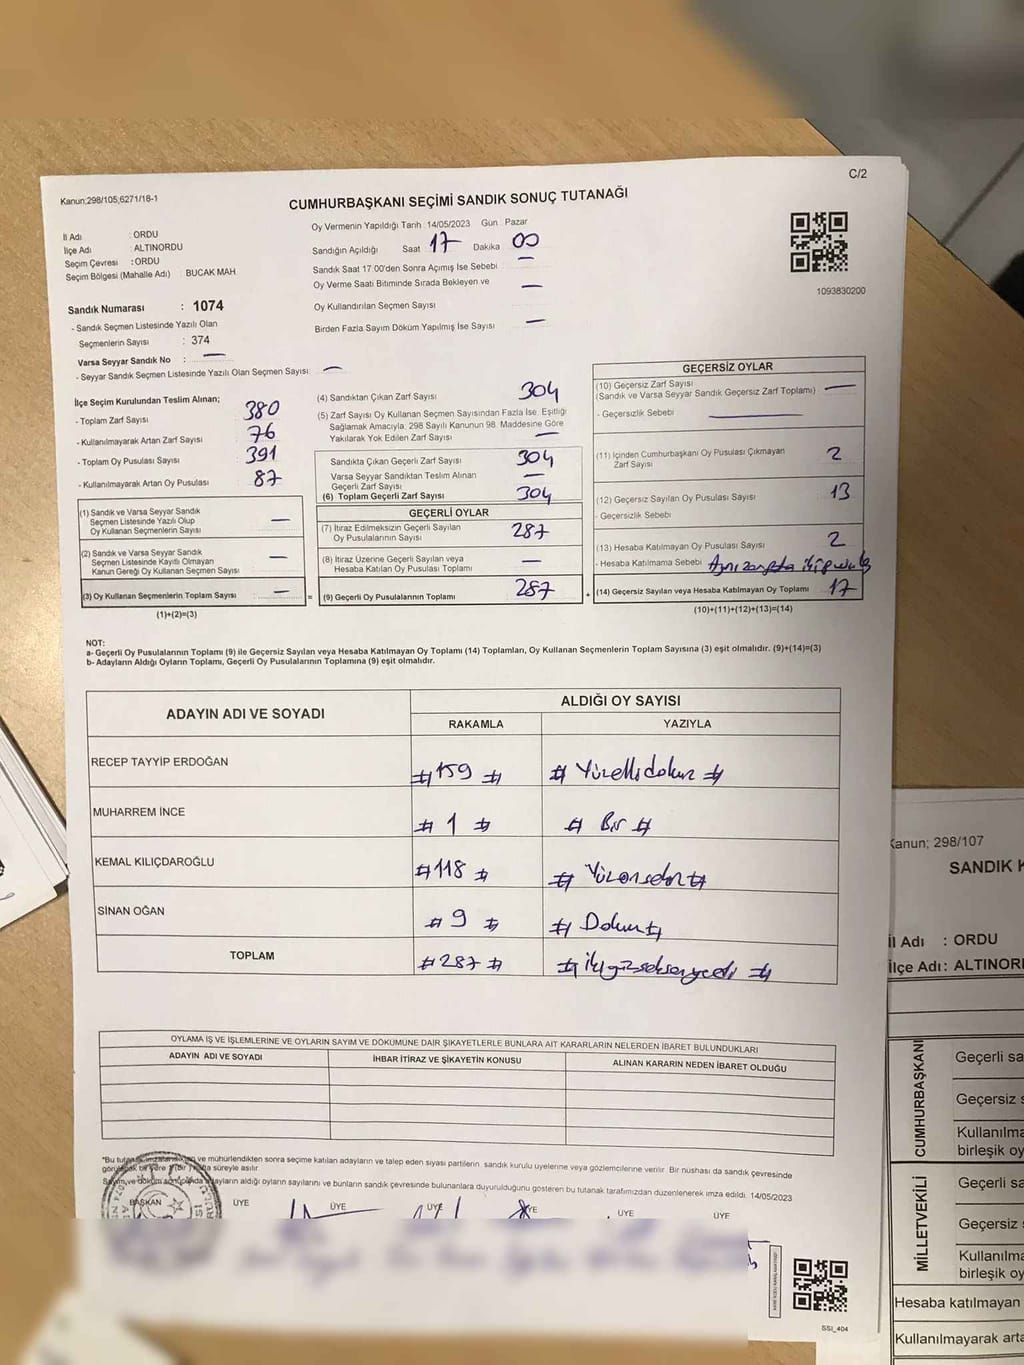 C/2
Kanun;298/105,6271/18-1
CUMHURBAŞKANI SEÇİMİ SANDIK SONUÇ TUTANAĞI
İl Adı : ORDU
İlçe Adı : ALTINORDU
Seçim Çevresi : ORDU
Seçim Bölgesi (Mahalle Adı) : BUCAK MAH
Oy Vermenin Yapıldığı Tarih :14/05/2023 Gün : Pazar
Sandığın Açıldığı Saat 17 Dakika 00
Sandık Saat 17.00'den Sonra Açılmış İse Sebebi —
Oy Verme Saati Bitiminde Sırada Bekleyen ve —
Oy Kullandırılan Seçmen Sayısı
Birden Fazla Sayım Döküm Yapılmış İse Sayısı —
1093830200
Sandık Numarası : 1074
- Sandık Seçmen Listesinde Yazılı Olan
Seçmenlerin Sayısı : 374
Varsa Seyyar Sandık No : —
- Seyyar Sandık Seçmen Listesinde Yazılı Olan Seçmen Sayısı: —
İlçe Seçim Kurulundan Teslim Alınan;
- Toplam Zarf Sayısı 380
- Kullanılmayarak Artan Zarf Sayısı 76
- Toplam Oy Pusulası Sayısı 391
- Kullanılmayarak Artan Oy Pusulası 87
(1) Sandık ve Varsa Seyyar Sandık
Seçmen Listesinde Yazılı Olup
Oy Kullanan Seçmenlerin Sayısı —
(2) Sandık ve Varsa Seyyar Sandık
Seçmen Listesinde Kayıtlı Olmayan
Kanun Gereği Oy Kullanan Seçmen Sayısı —
(3) Oy Kullanan Seçmenlerin Toplam Sayısı —
(1)+(2)=(3)
(4) Sandıktan Çıkan Zarf Sayısı 304
(5) Zarf Sayısı Oy Kullanan Seçmen Sayısından Fazla İse, Eşitliği
Sağlamak Amacıyla; 298 Sayılı Kanunun 98. Maddesine Göre
Yakılarak Yok Edilen Zarf Sayısı —
Sandıkta Çıkan Geçerli Zarf Sayısı 304
Varsa Seyyar Sandıktan Teslim Alınan
Geçerli Zarf Sayısı —
(6) Toplam Geçerli Zarf Sayısı 304
GEÇERLİ OYLAR
(7) İtiraz Edilmeksizin Geçerli Sayılan
Oy Pusulalarının Sayısı 287
(8) İtiraz Üzerine Geçerli Sayılan veya
Hesaba Katılan Oy Pusulası Toplamı —
= (9) Geçerli Oy Pusulalarının Toplamı 287
GEÇERSİZ OYLAR
(10) Geçersiz Zarf Sayısı
(Sandık ve Varsa Seyyar Sandık Geçersiz Zarf Toplamı) —
- Geçersizlik Sebebi —
(11) İçinden Cumhurbaşkanı Oy Pusulası Çıkmayan
Zarf Sayısı 2
(12) Geçersiz Sayılan Oy Pusulası Sayısı 13
- Geçersizlik Sebebi
(13) Hesaba Katılmayan Oy Pusulası Sayısı 2
- Hesaba Katılmama Sebebi Aynı zarfta iki pusula
+ (14) Geçersiz Sayılan veya Hesaba Katılmayan Oy Toplamı 17
(10)+(11)+(12)+(13)=(14)
NOT:
a- Geçerli Oy Pusulalarının Toplamı (9) ile Geçersiz Sayılan veya Hesaba Katılmayan Oy Toplamı (14) Toplamları, Oy Kullanan Seçmenlerin Toplam Sayısına (3) eşit olmalıdır. (9)+(14)=(3)
b- Adayların Aldığı Oyların Toplamı, Geçerli Oy Pusulalarının Toplamına (9) eşit olmalıdır.
ADAYIN ADI VE SOYADI ALDIĞI OY SAYISI
RAKAMLA YAZIYLA
RECEP TAYYİP ERDOĞAN #159# #Yüzellidokuz#
MUHARREM İNCE #1# #Bir#
KEMAL KILIÇDAROĞLU #118# #Yüzonsekiz#
SİNAN OĞAN #9# #Dokuz#
TOPLAM #287# #İkiyüzseksenyedi#
OYLAMA İŞ VE İŞLEMLERİNE VE OYLARIN SAYIM VE DÖKÜMÜNE DAİR ŞİKAYETLERLE BUNLARA AİT KARARLARIN NELERDEN İBARET BULUNDUKLARI
ADAYIN ADI VE SOYADI İHBAR İTİRAZ VE ŞİKAYETİN KONUSU ALINAN KARARIN NEDEN İBARET OLDUĞU
*Bu tutanak imzalandıktan ve mühürlendikten sonra seçime katılan adayların ve talep eden siyasi partilerin sandık kurulu üyelerine veya gözlemcilerine verilir. Bir nüshası da sandık çevresinde
görülecek bir yere 1 (bir) hafta süreyle asılır.
Sayım ve döküm sonucunda adayların aldığı oyların sayılarını ve bunların sandık çevresinde bulunanlara duyurulduğunu gösteren bu tutanak tarafımızdan düzenlenerek imza edildi. 14/05/2023
BAŞKAN ÜYE ÜYE ÜYE ÜYE ÜYE ÜYE
SSİ_404
Kanun; 298/107
SANDIK
İl Adı : ORDU
İlçe Adı : ALTINOR
CUMHURBAŞKANI
Geçerli
Geçersiz
birleşik
MİLLETVEKİLİ
Geçerli
Geçersiz
birleşik
Hesaba katılmayan
Kullanılmayarak